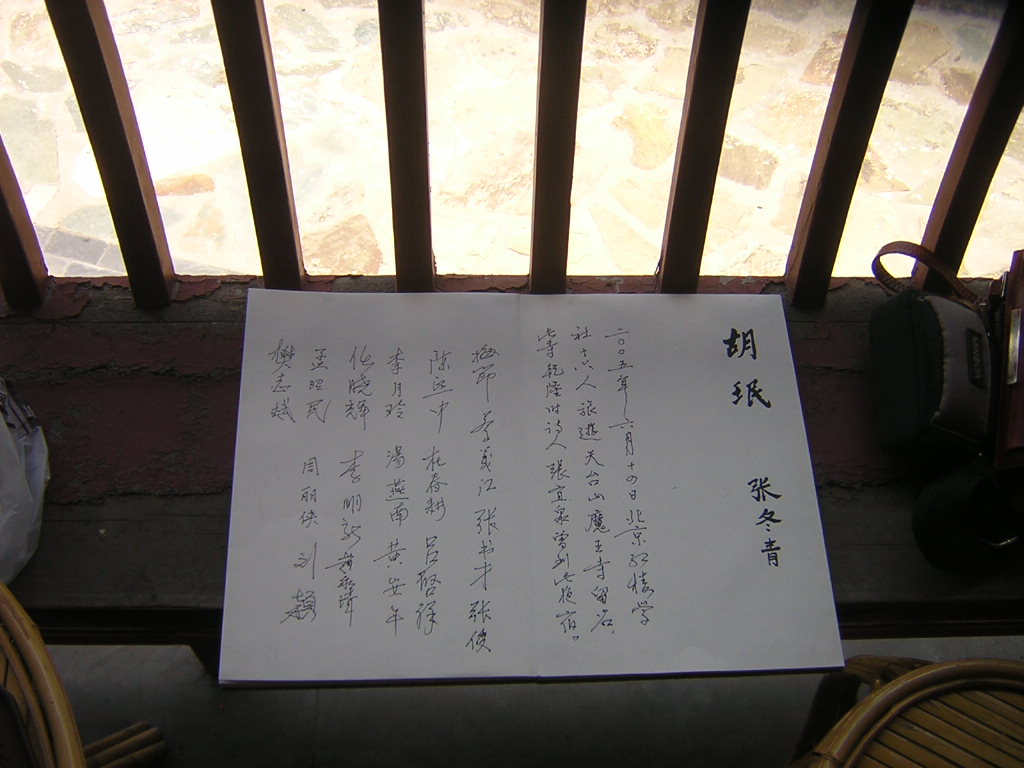 胡珉 张冬青
二〇〇五年六月十四日北京红楼学
社十六人旅遊天台山魔王寺留名,
此寺乾隆时诗人張宜泉曾到此夜宿。
梅节 李义江 张书才 张俊
陈熙中 杜春耕 吕啓祥
李月玲 湯燕南 黄安年
任晓辉 李明新
孟昭民 周丽侠 刘颖
樊志斌